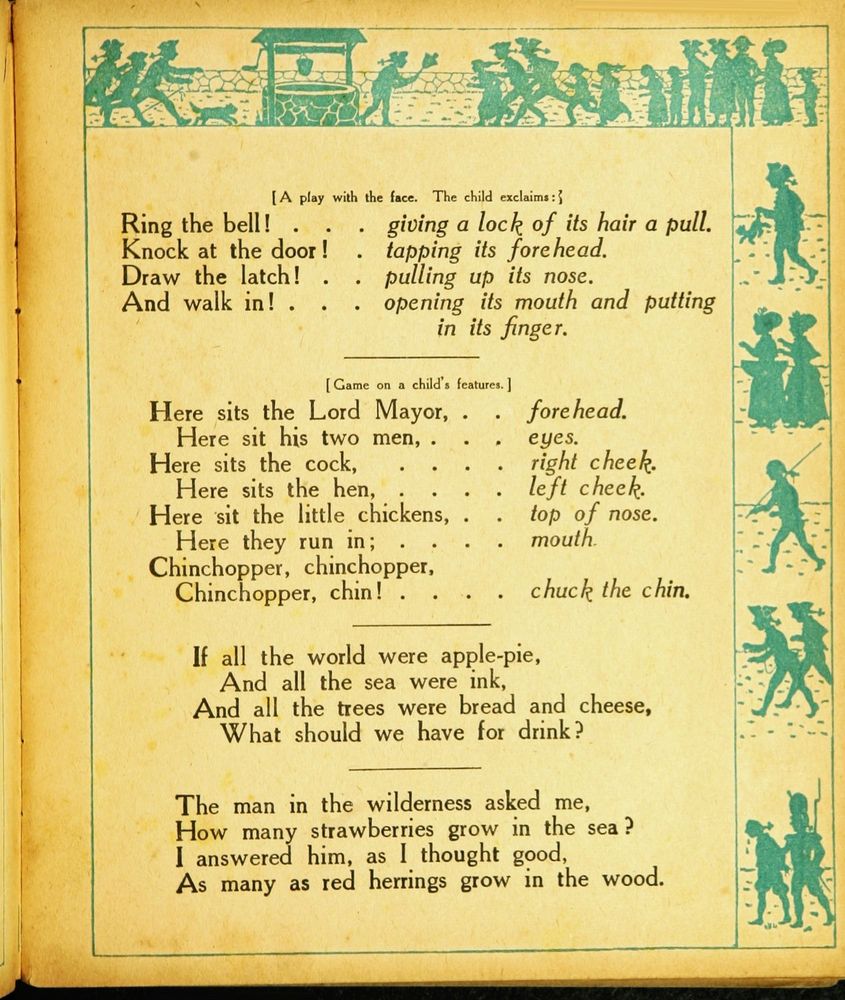 [A play with the face. The child exclaims:}
Ring the bell! . . . giving a lock of its hair a pull.
Knock at the door! . tapping its forehead.
Draw the latch! . . pulling up its nose.
And walk in! . . . opening its mouth and putting
in its finger.
[Game on a child's features.]
Here sits the Lord Mayor, . . forehead.
Here sit his two men, . . . eyes.
Here sits the cock, . . . . right cheek.
Here sits the hen, . . . . left cheek.
Here sit the little chickens, . . top of nose.
Here they run in; . . . . mouth.
Chinchopper, chinchopper,
Chinchopper, chin! . . . . chuck the chin.
If all the world were apple-pie,
And all the sea were ink,
And all the trees were bread and cheese,
What should we have for drink?
The man in the wilderness asked me,
How many strawberries grow in the sea?
I answered him, as I thought good,
As many as red herrings grow in the wood.